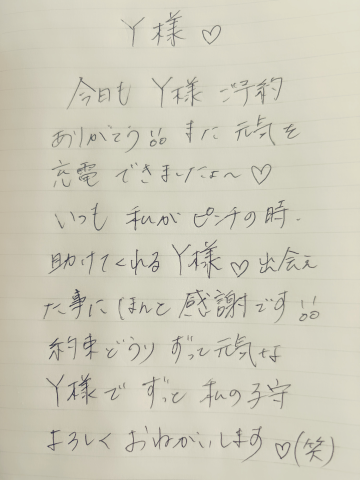 Y様♡
今日も Y様 ご予約
ありがとう!! また 元気を
充電 できましたょ〜♡
いつも 私が ピンチの時、
助けてくれる Y様♡ 出会え
た事に ほんと 感謝です!!
約束どうり ずっと元気な
Y様で ずっと 私の子守
よろしく おねがいします♡(笑)